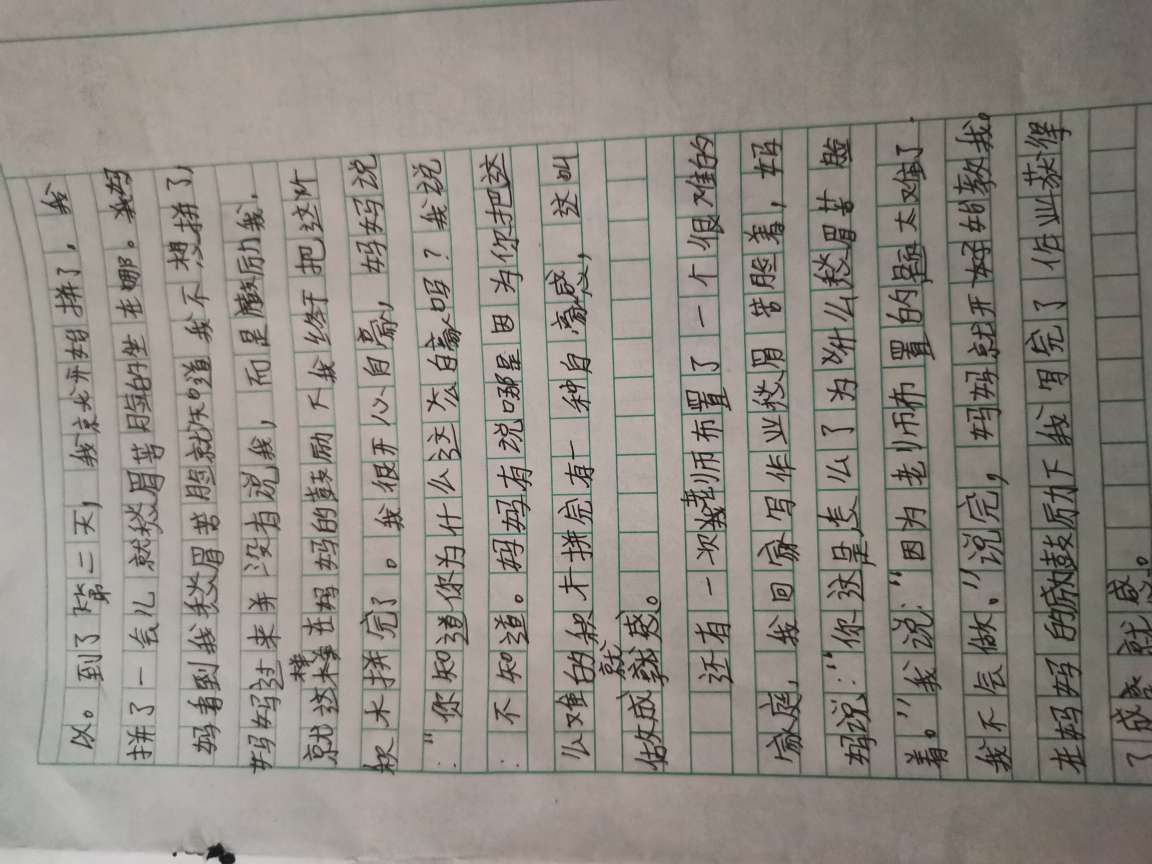 以。到了第二天，我就开始拼了，我
拼了一会儿就愁眉苦脸的坐在哪。妈妈
妈看到我愁眉苦脸就知道我不想拼了，
妈妈过来并没有说我，而是鼓厉我.
就这样在妈妈的鼓励下我终于把这个
积木拼完了。我很开心自豪，妈妈说
：“你知道你为什么这么自豪吗？我说
：不知道。妈妈有说哪是因为你把这
么难的积木拼完有一种自豪感，这叫
做成就感。
还有一次我老师布置了一个很难的
家庭，我回家写作业愁眉苦脸着，妈
妈说：“你这是怎么了为什么愁眉苦脸
着。”我说：“因为老师布置的题太难了.
我不会做.”说完，妈妈就开始教我。
在妈妈的鼓厉下我写完了作业获得
了成就感。